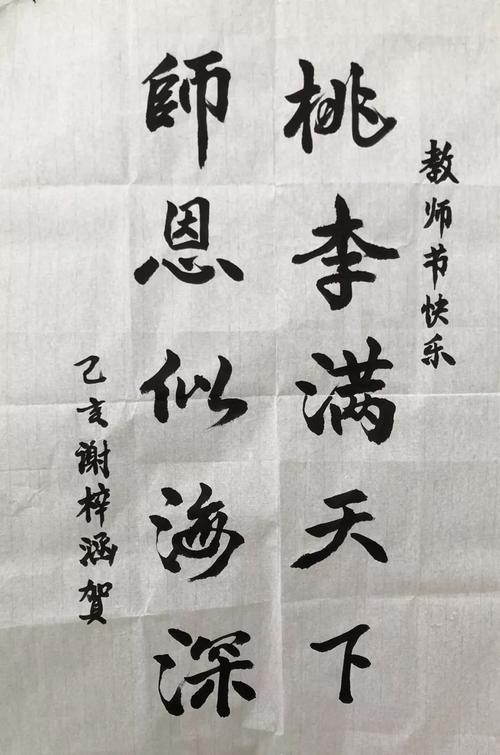 教师节快乐
桃李满天下
師恩似海深
己亥谢梓涵贺